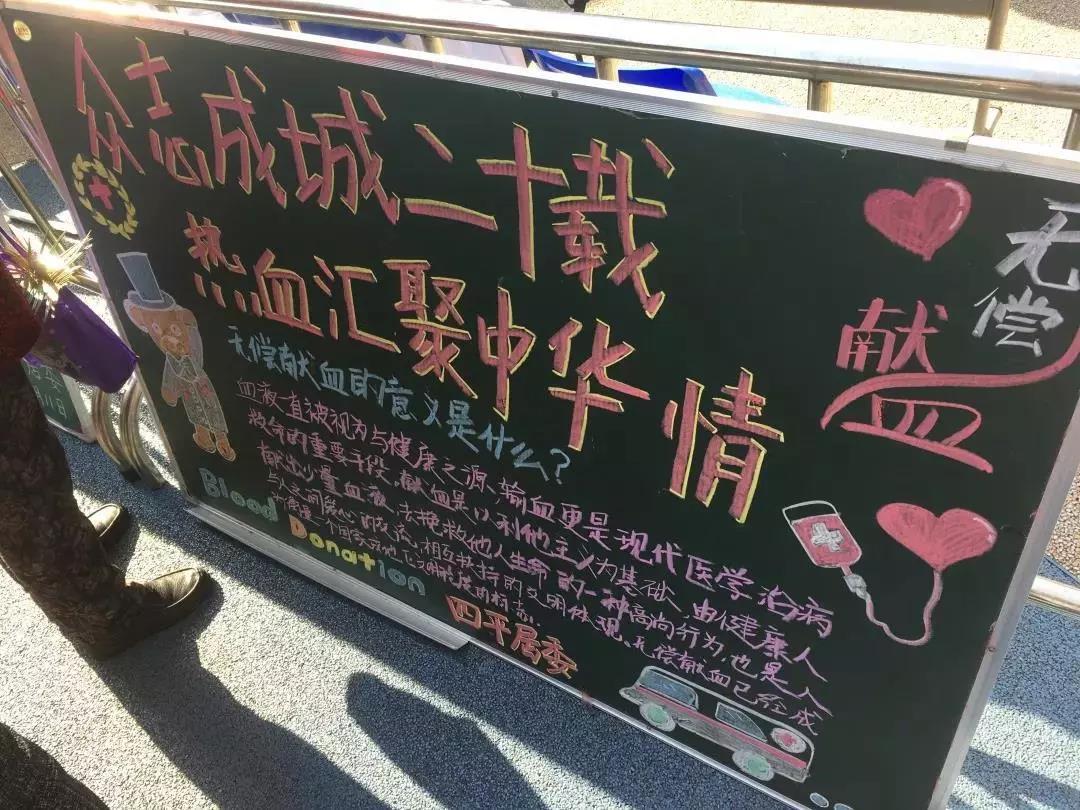 众志成城二十载
热血汇聚中华情
无偿
献血
无偿献血的意义是什么?
血液一直被视为与健康之源、输血更是现代医学治病
救命的重要手段、献血是以利他主义为基础、由健康人
献出少量血液、去挽救他人生命的一种高尚行为、也是人
与人之间爱心的交流、相互扶持的文明体现、无偿献血已经成
一个国家文明程度的标志.
Blood Donation
四平居委